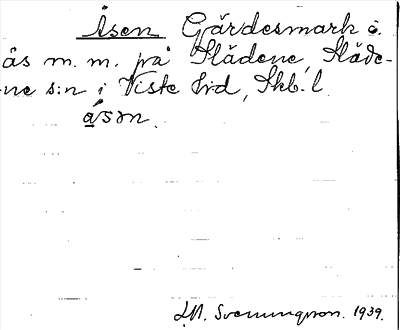 Åsen Gärdesmark o.
ås m. m. på Slädene, Släde-
ne s:n i Viste hd, Skb. l.
åsn.
Svenningson. 1939.